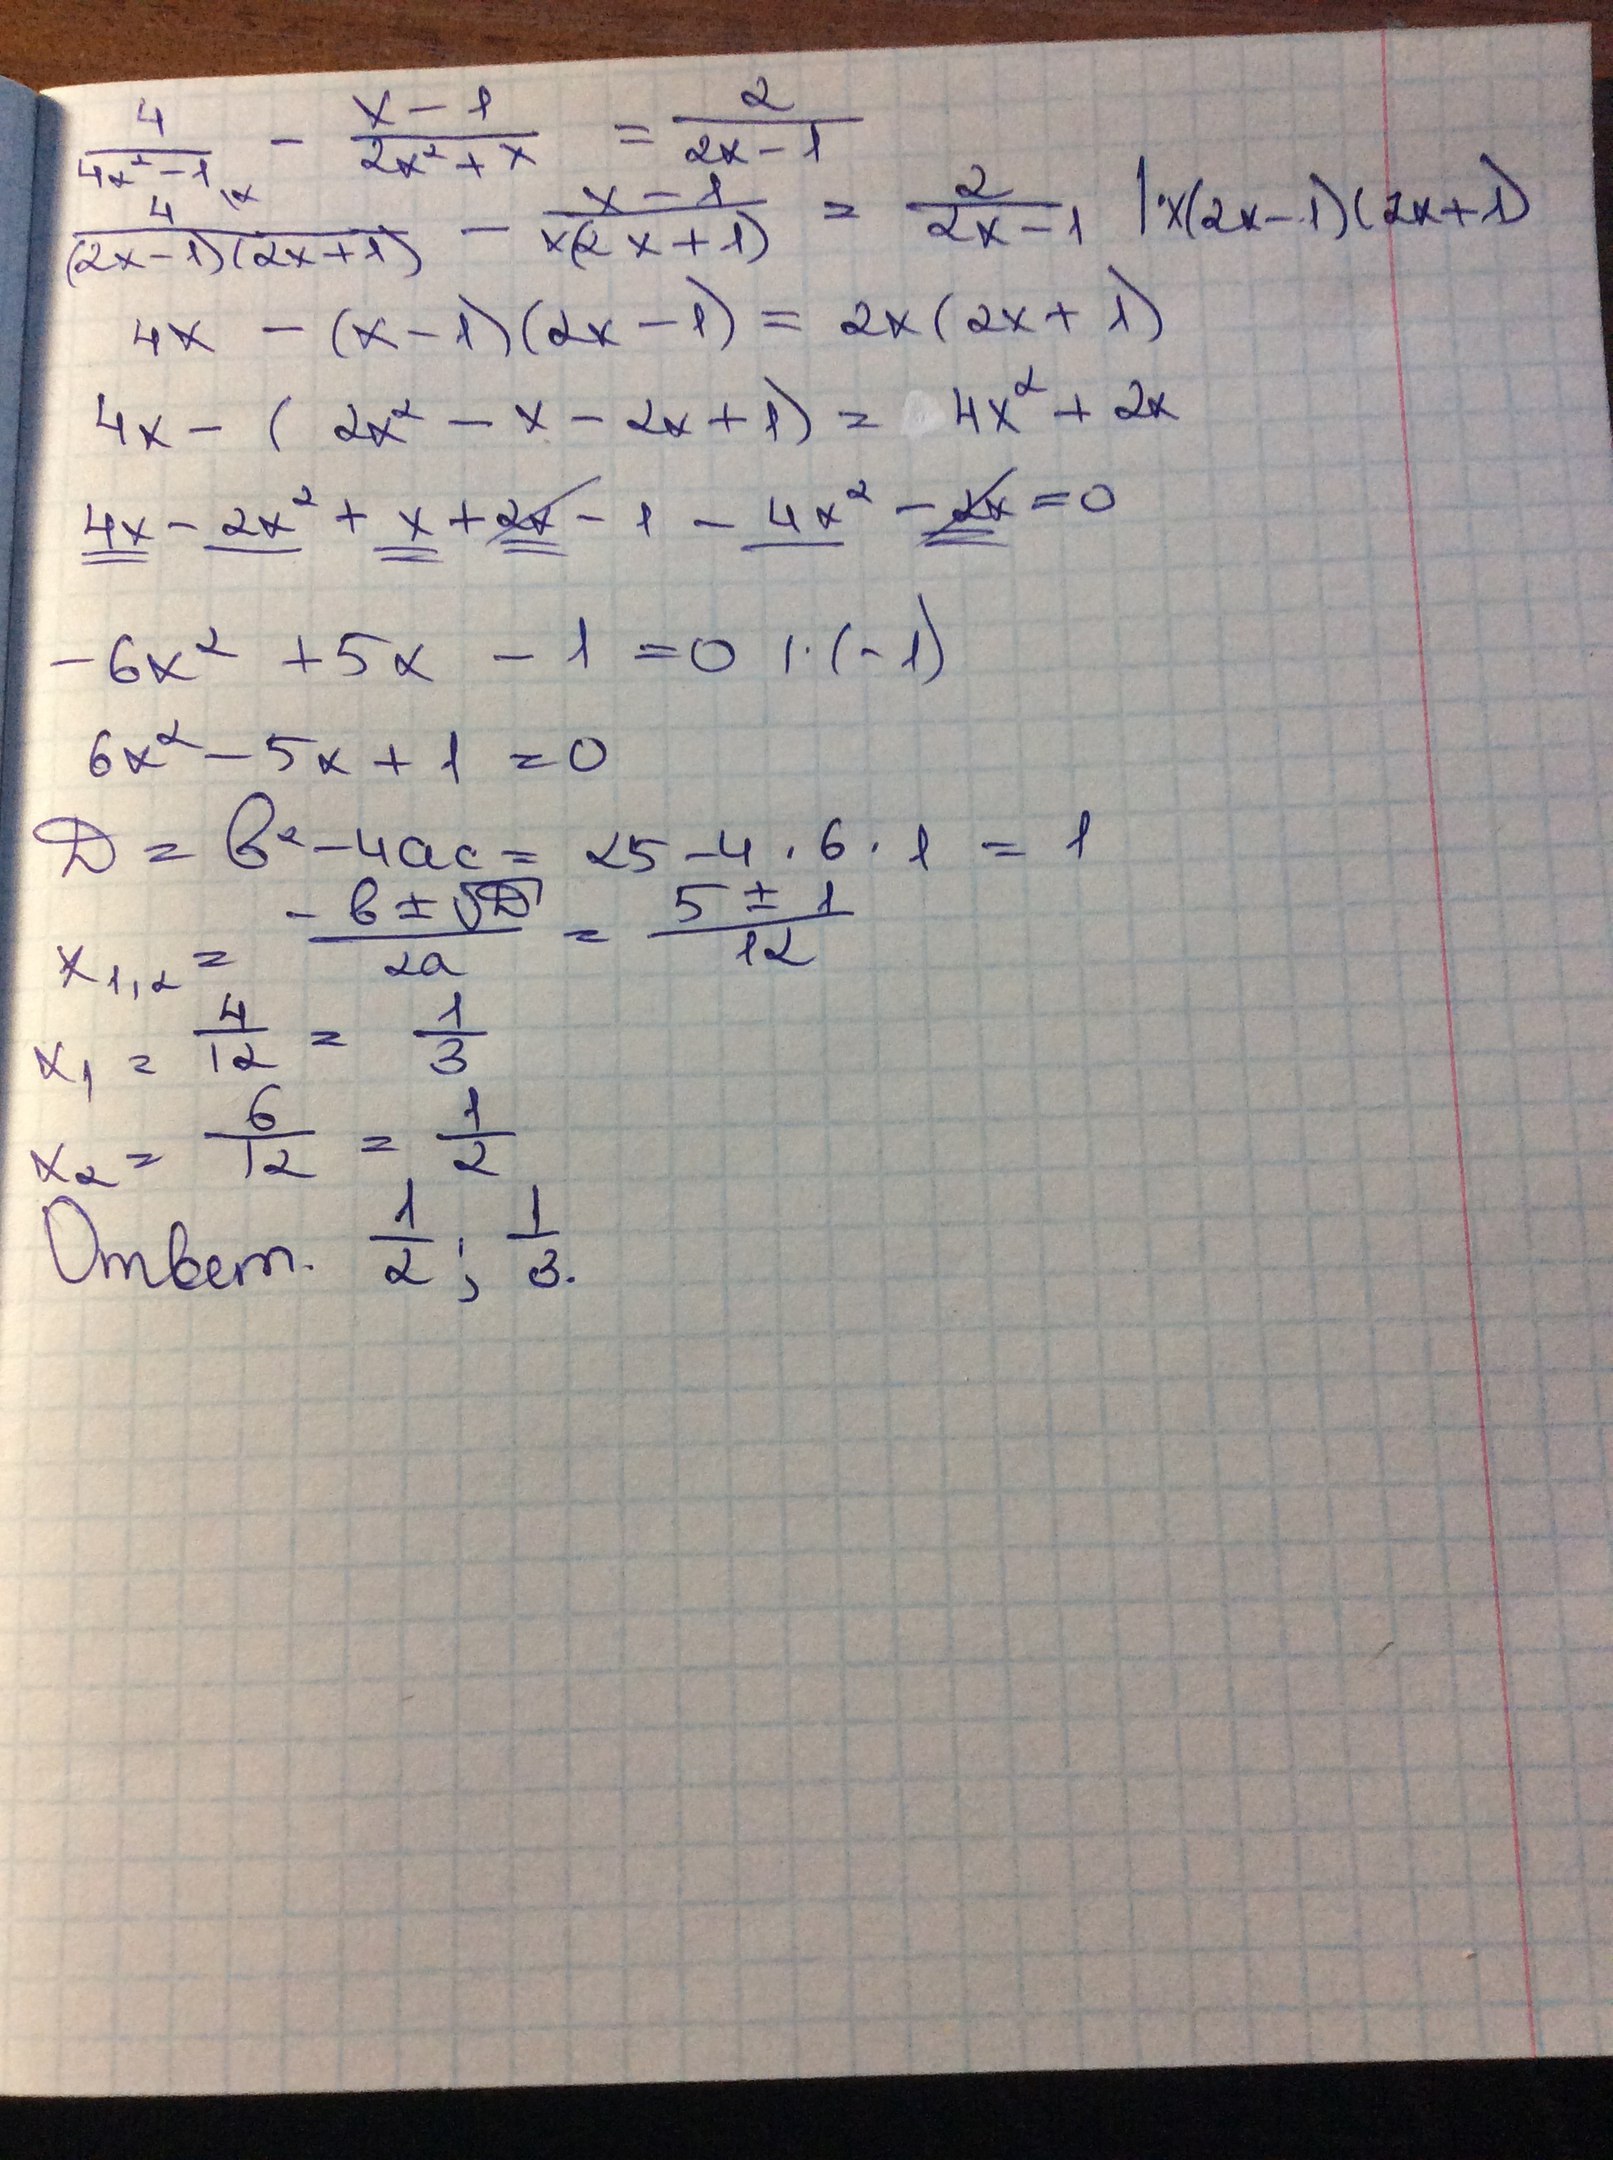 4/(4x²-1) - (x-1)/(2x²+x) = 2/(2x-1)
4\x/((2x-1)(2x+1)) - (x-1)/(x(2x+1)) = 2/(2x-1) |·x(2x-1)(2x+1)
4x - (x-1)(2x-1) = 2x(2x+1)
4x - (2x² - x - 2x + 1) = 4x² + 2x
4x - 2x² + x + 2x - 1 - 4x² - 2x = 0
-6x² + 5x - 1 = 0 |·(-1)
6x² - 5x + 1 = 0
D = b² - 4ac = 25 - 4·6·1 = 1
x₁,₂ = (-b ± √D)/(2a) = (5 ± 1)/12
x₁ = 4/12 = 1/3
x₂ = 6/12 = 1/2
Ответ. 1/2 ; 1/3.